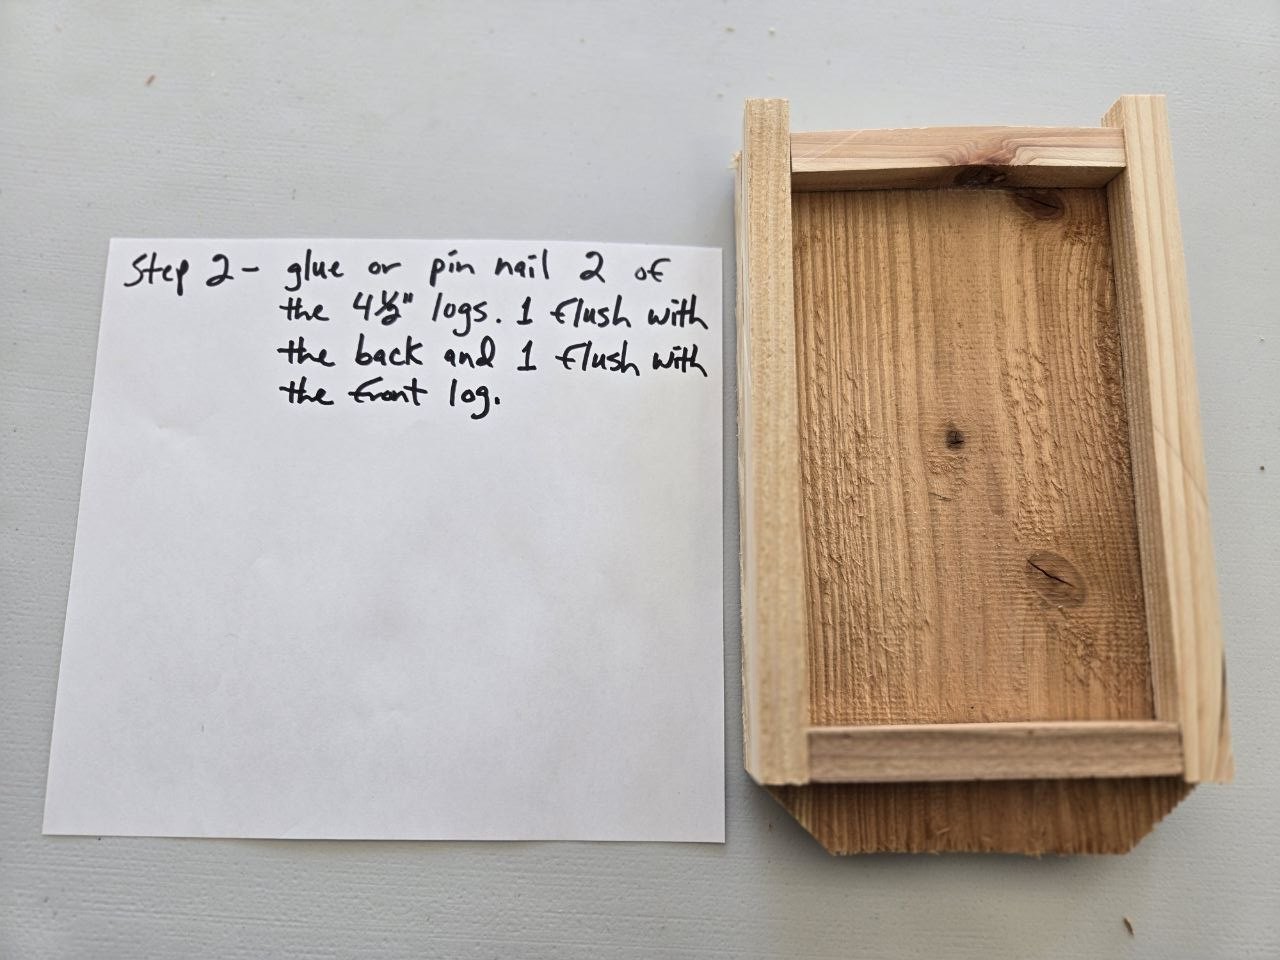 Step 2- glue or pin nail 2 of
the 4½" logs. 1 flush with
the back and 1 flush with
the front log.